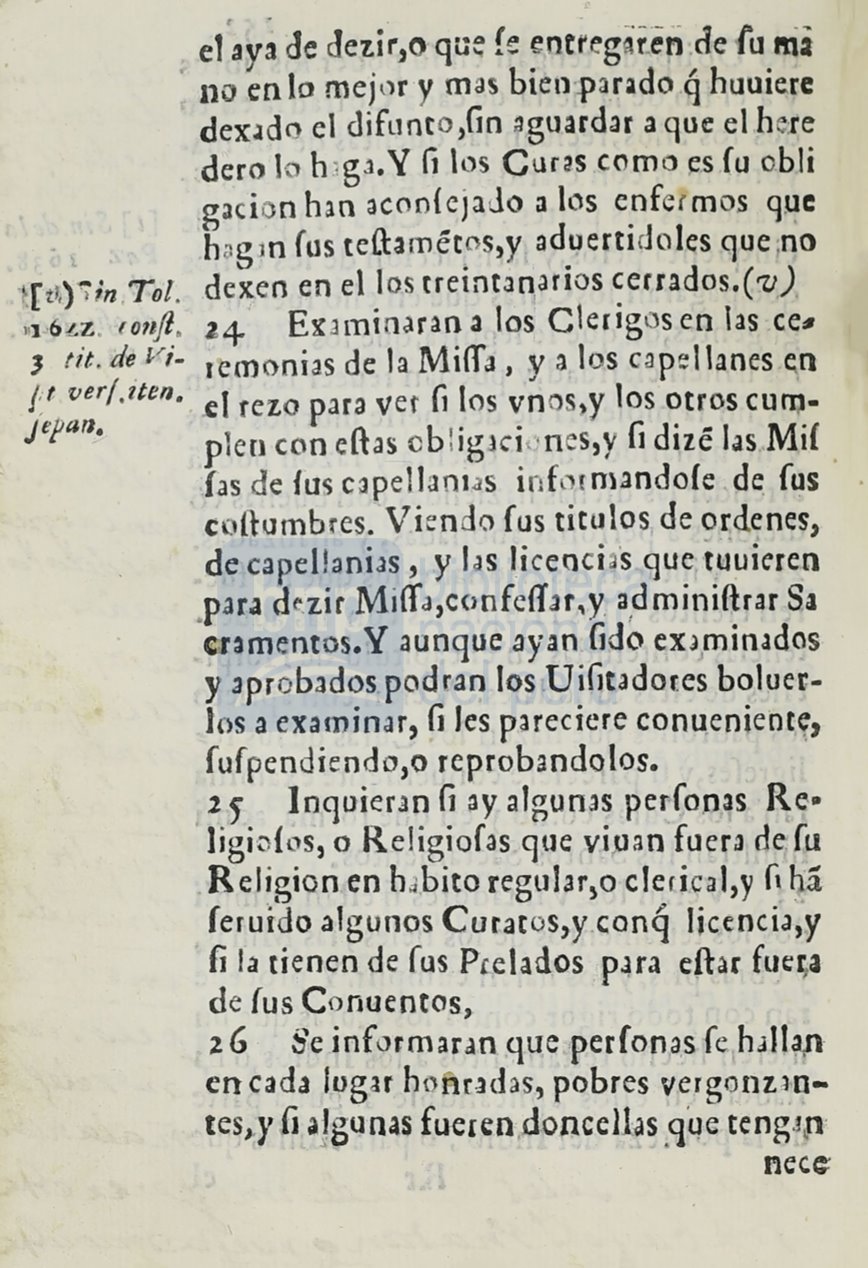 el aya de dezir,o que ſe entregaren de ſu mã
no en lo mejor y mas bien parado q́ huuiere
dexado el difunto,ſin aguardar a que el here
dero lo haga.Y ſi los Curas como es ſu obli
gacion han aconſejado a los enfermos que
hagan ſus teſtamẽtos,y aduertidoles que no
dexen en el los treintanarios cerrados.(v)
[v) Sin Tol.
1622. conſt.
3 tit. de Vi-
ſit verſ.iten.
ſepan.
24 Examinaran a los Clerigos en las ce-
remonias de la Miſſa , y a los capellanes en
el rezo para ver ſi los vnos,y los otros cum-
plen con eſtas obligaciones,y ſi dizẽ las Miſ
ſas de ſus capellanias informandoſe de ſus
coſtumbres. Viendo ſus titulos de ordenes,
de capellanias , y las licencias que tuuieren
para dezir Miſſa,confeſſar,y adminiſtrar Sa
cramentos.Y aunque ayan ſido examinados
y aprobados podran los Uiſitadores boluer-
los a examinar, ſi les pareciere conueniente,
ſuſpendiendo,o reprobandolos.
25 Inquieran ſi ay algunas perſonas Re-
ligioſos, o Religioſas que viuan fuera de ſu
Religion en habito regular,o clerical,y ſi hã
ſeruido algunos Curatos,y conq́ licencia,y
ſi la tienen de ſus Prelados para eſtar fuera
de ſus Conuentos,
26 Se informaran que perſonas ſe hallan
en cada lugar honradas, pobres vergonzan-
tes,y ſi algunas fueren doncellas que tengan
nece